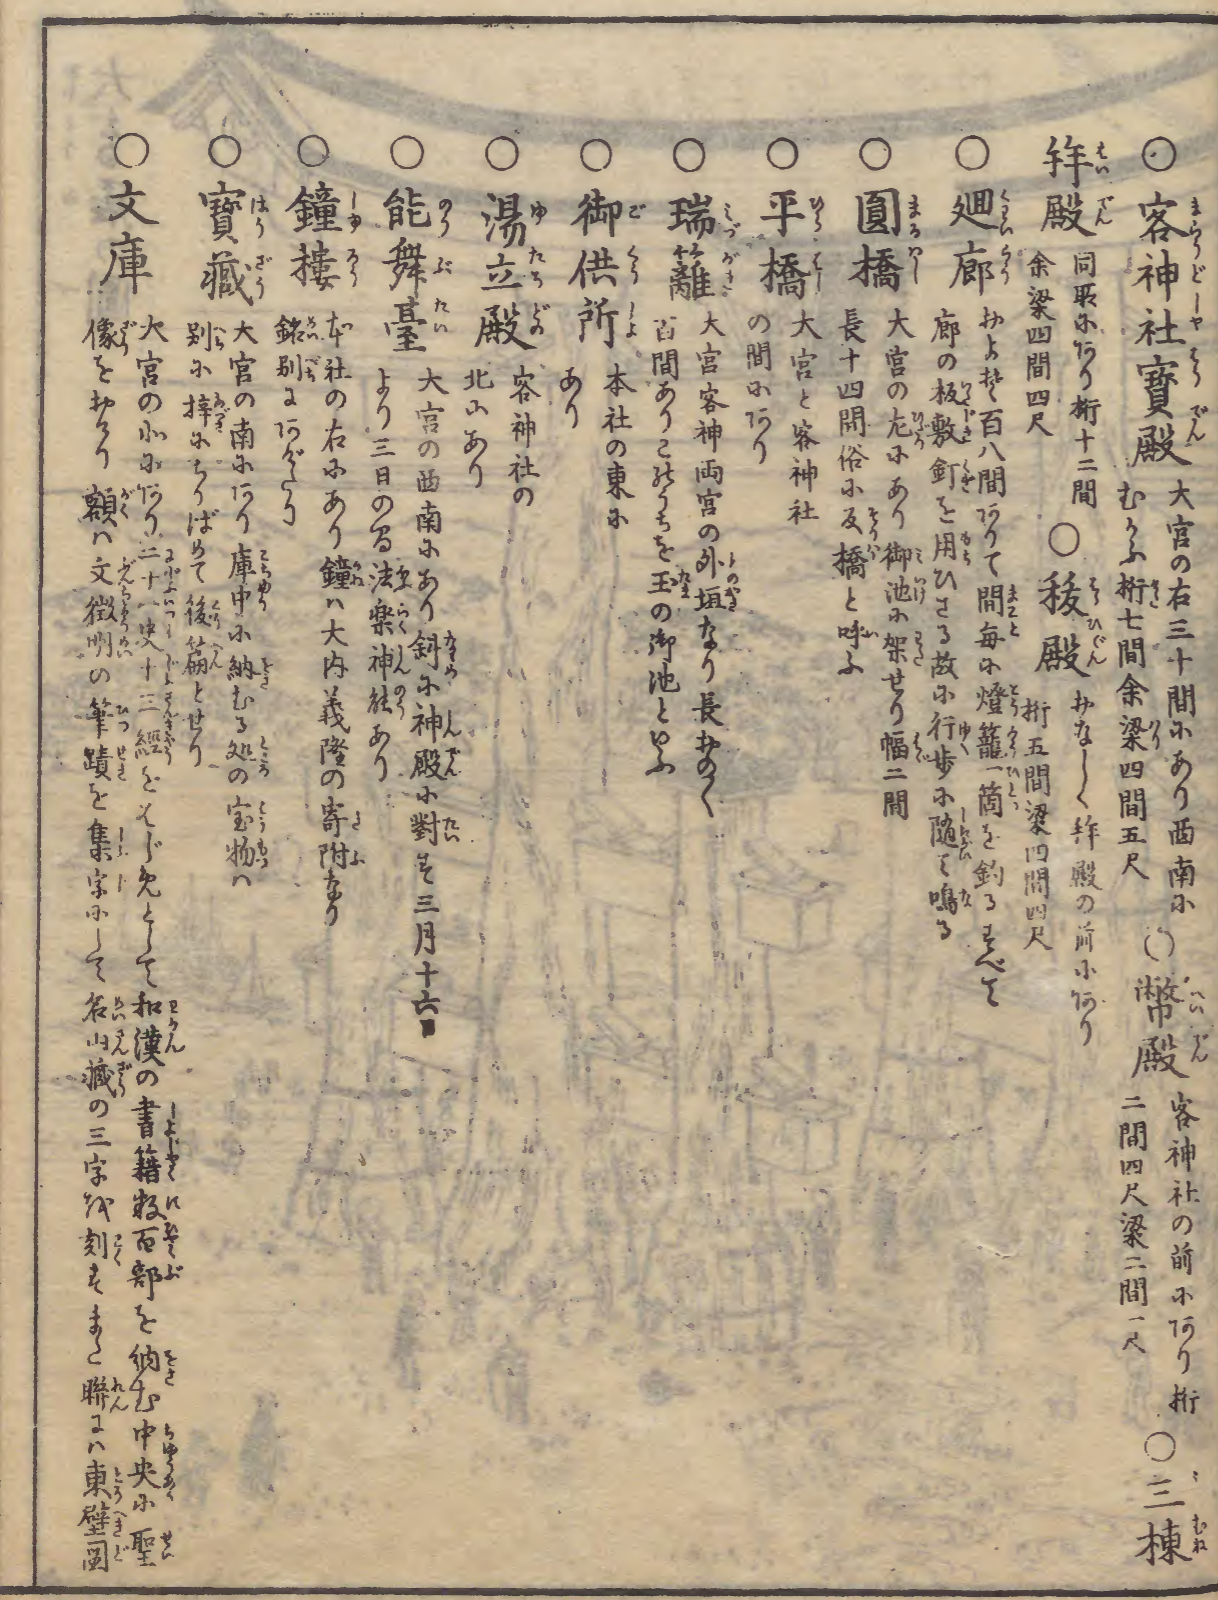 ○客神社寳殿 大宮の右三十間にあり西南に むかふ桁七間余梁四間五尺 ○幣殿 客神社の前にあり桁 二間四尺梁二間一尺 ○三棟
拝殿 同所にあり桁十二間 余梁四間四尺 ○祓殿 おなしく拝殿の前にあり 桁五間梁四間四尺
○廻廊 およそ百八間ありて間毎に燈籠一箇を釣るすべて
廊の板敷釘を用ひざる故に行歩に随て鳴る
○圓橋 大宮の左にあり御池に架せり幅二間
長十四間俗に反橋と呼ふ
○平橋 大宮と客神社
の間にあり
○瑞籬 大宮客神両宮の外垣なり長おのく
百間ありこのうちを玉の御池といふ
○御供所 本社の東に
あり
○湯立殿 客神社の
北にあり
○能舞臺 大宮の西南にあり斜に神殿に對す三月十六日
より三日の間法楽神能あり
○鐘樓 本社の右にあり鐘ハ大内義隆の寄附なり
銘別にあげたり
○寳藏 大宮の南にあり庫中に納むる処の宝物ハ
別に梓にちりばめて後篇とせり
○文庫 大宮の北にあり二十一史十三經をはじめとして和漢の書籍数百部を納む中央に聖
像をおけり額ハ文徴明の筆蹟を集字にして名山藏の三字を刻すまた聯にハ東壁図